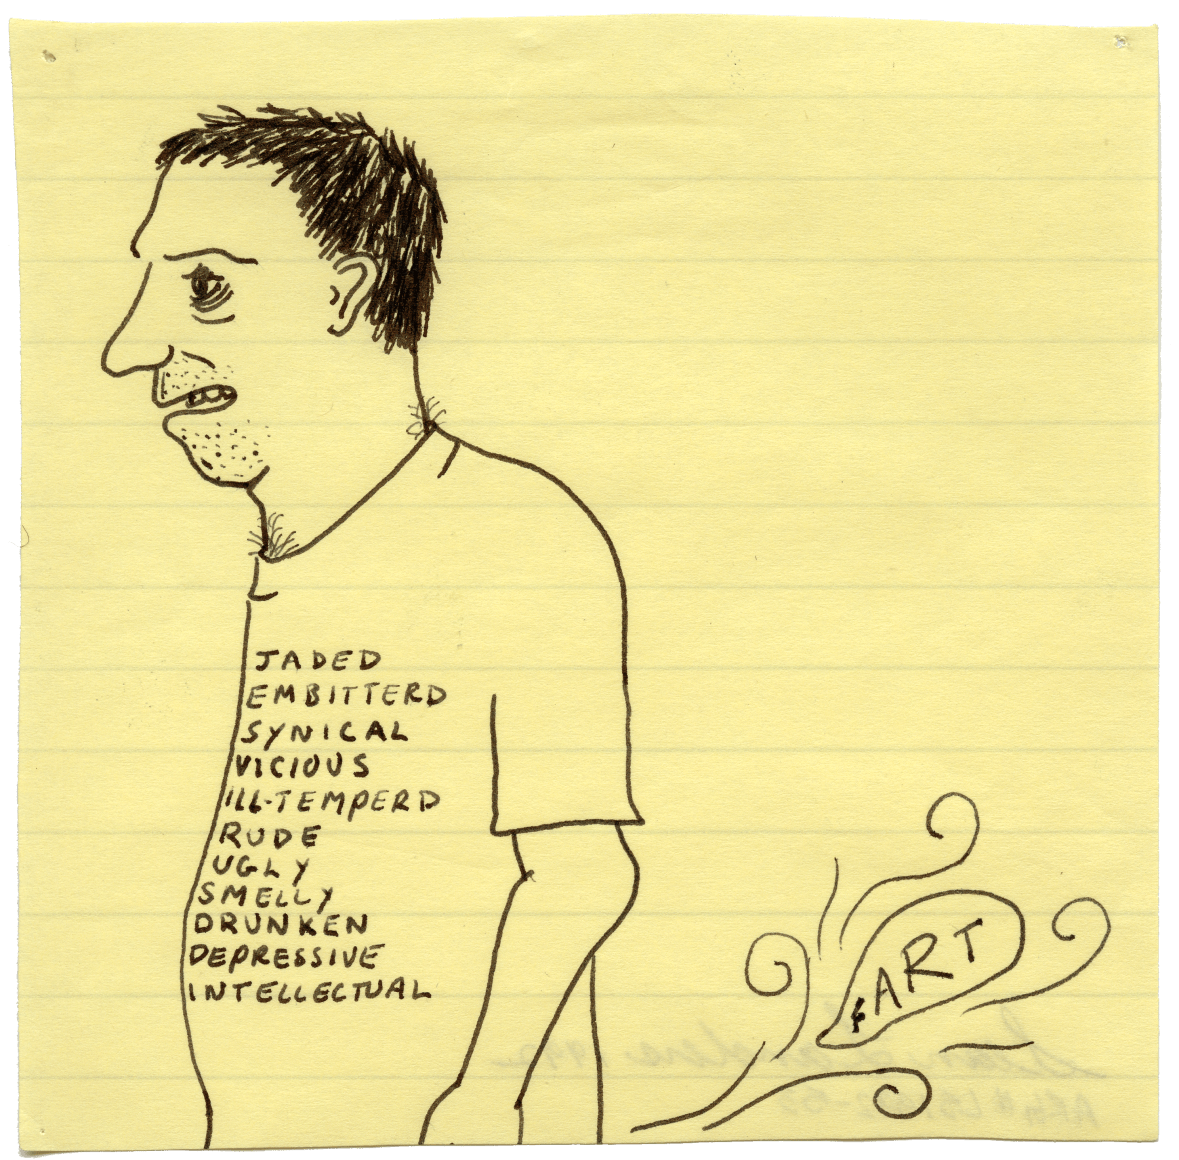 JADED
EMBITTERD
SYNICAL
VICIOUS
ILL-TEMPERD
RUDE
UGLY
SMELLY
DRUNKEN
DEPRESSIVE
INTELLECTUAL
fART